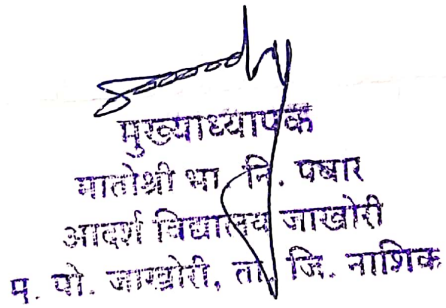 मुख्याध्यापक
मातोश्री भा. नि. पवार
आदर्श विद्यालय जाखोरी
प. पो. जाखोरी, ता. जि. नाशिक